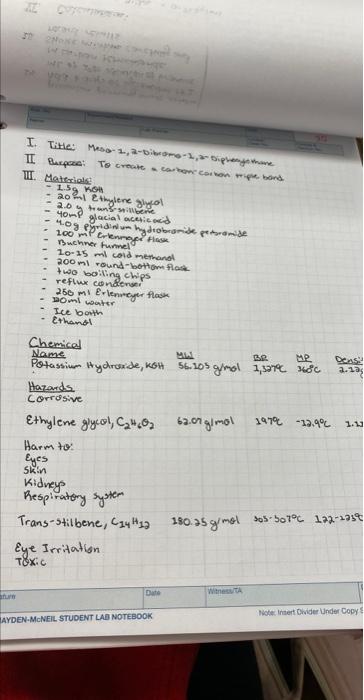 I. Title: Meso-1,2-Dibromo-1,2-Diphenylethane
II Purpose: To create a carbon-carbon triple bond
III. Materials:
- 1.5g KOH
- 20ml Ethylene glycol
- 2.0g trans-stilbene
- 40ml glacial acetic acid
- 4.0g pyridinium hydrobromide perbromide
- 100 ml Erlenmeyer flask
- Buchner funnel
- 10-15 ml cold methanol
- 200ml round-bottom flask
- two boiling chips
- reflux condenser
- 250 ml Erlenmeyer flask
- ml water
- Ice bath
- Ethanol
Chemical
Name MW BP MP Densi
Potassium Hydroxide, KOH 56.105 g/mol 1,327°C 360°C
Hazards
Corrosive
Ethylene glycol, C2H6O2 62.07 g/mol 197°C -12.9°C 1.1
Harm to:
Eyes
Skin
Kidneys
Respiratory system
Trans-stilbene, C14H12 180.25 g/mol 305-307°C 122-125°C
Eye Irritation
Toxic
ature Date Witness/TA
AYDEN-MCNEIL STUDENT LAB NOTEBOOK Note: Insert Divider Under Copy S